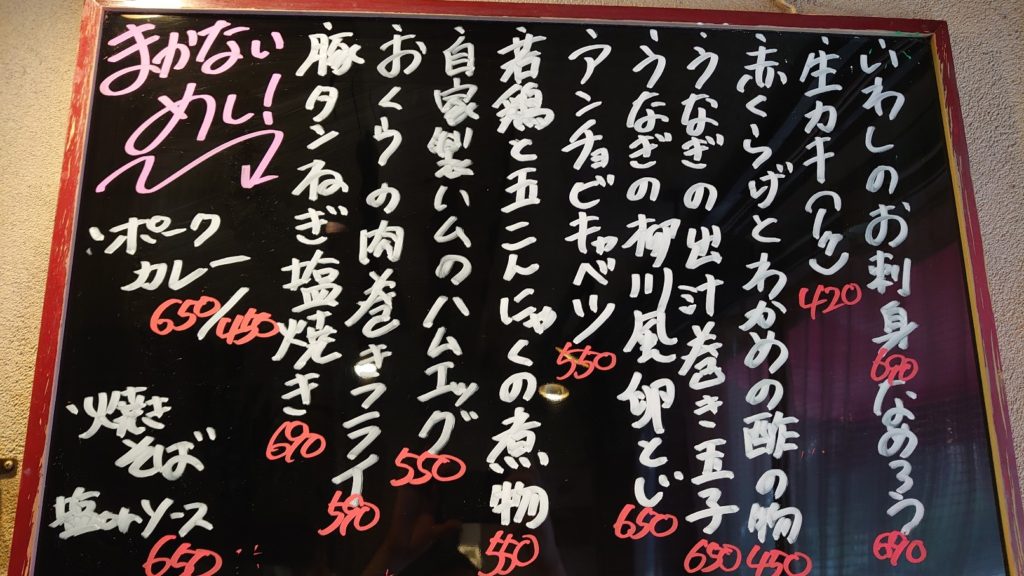 いわしのお刺身 690 なめろう 690
生カキ(1ヶ) 420
赤くらげとわかめの酢の物 450
うなぎの出汁巻き玉子 650
うなぎの柳川風卵とじ 650
アンチョビキャベツ 550
若鶏と玉こんにゃくの煮物 550
自家製ハムのハムエッグ 550
おくらの肉巻きフライ 590
豚タンねぎ塩焼き 690
まかない
めし!
ポーク
カレー
650/450
焼き
そば
塩orソース
650